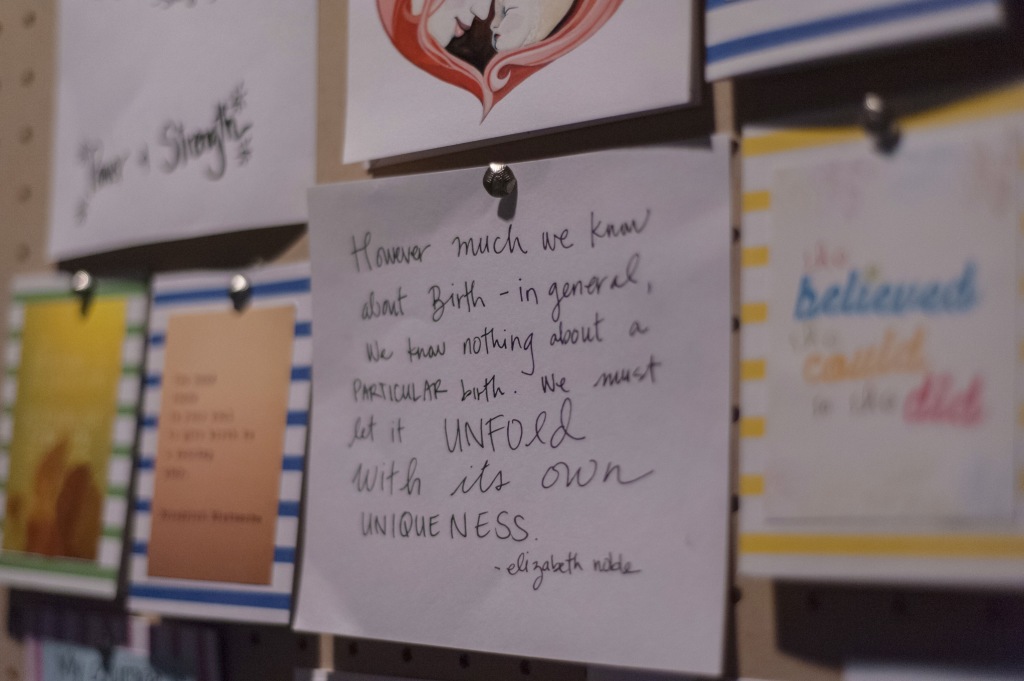 Power & Strength
However much we know
about Birth - in general,
we know nothing about a
PARTICULAR birth. We must
let it UNFOLD
with its own
UNIQUENESS.
- elizabeth noble
she
believed
she
could
so she did